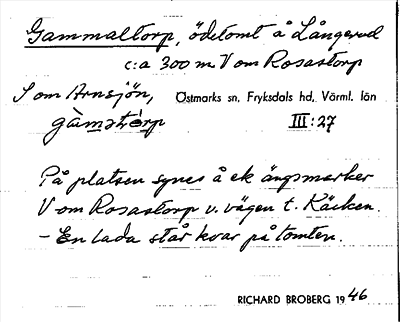 Gammaltorp, ödetomt å Långerud
c:a 300 m V om Rosastorp
S om Arnsjön, Östmarks sn, Fryksdals hd, Värml. län
III:27
På platsen synes å ek ängsmarker
V om Rosastorp v. vägen t. Käcken.
– En lada står kvar på tomten.
RICHARD BROBERG 1946